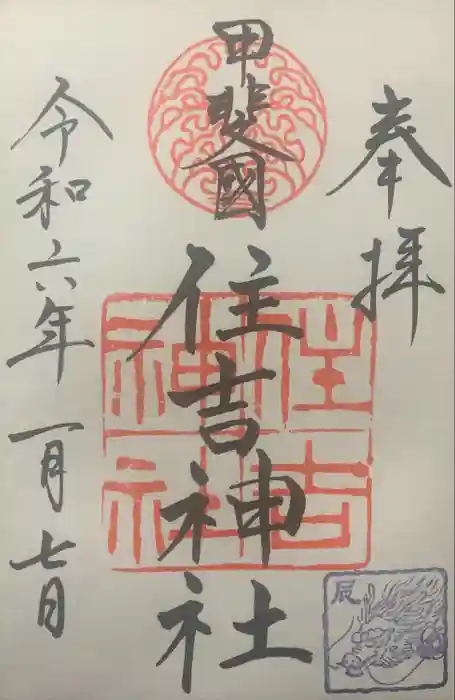 奉拝
甲斐國
住吉神社
住吉
神社
令和六年一月七日
辰